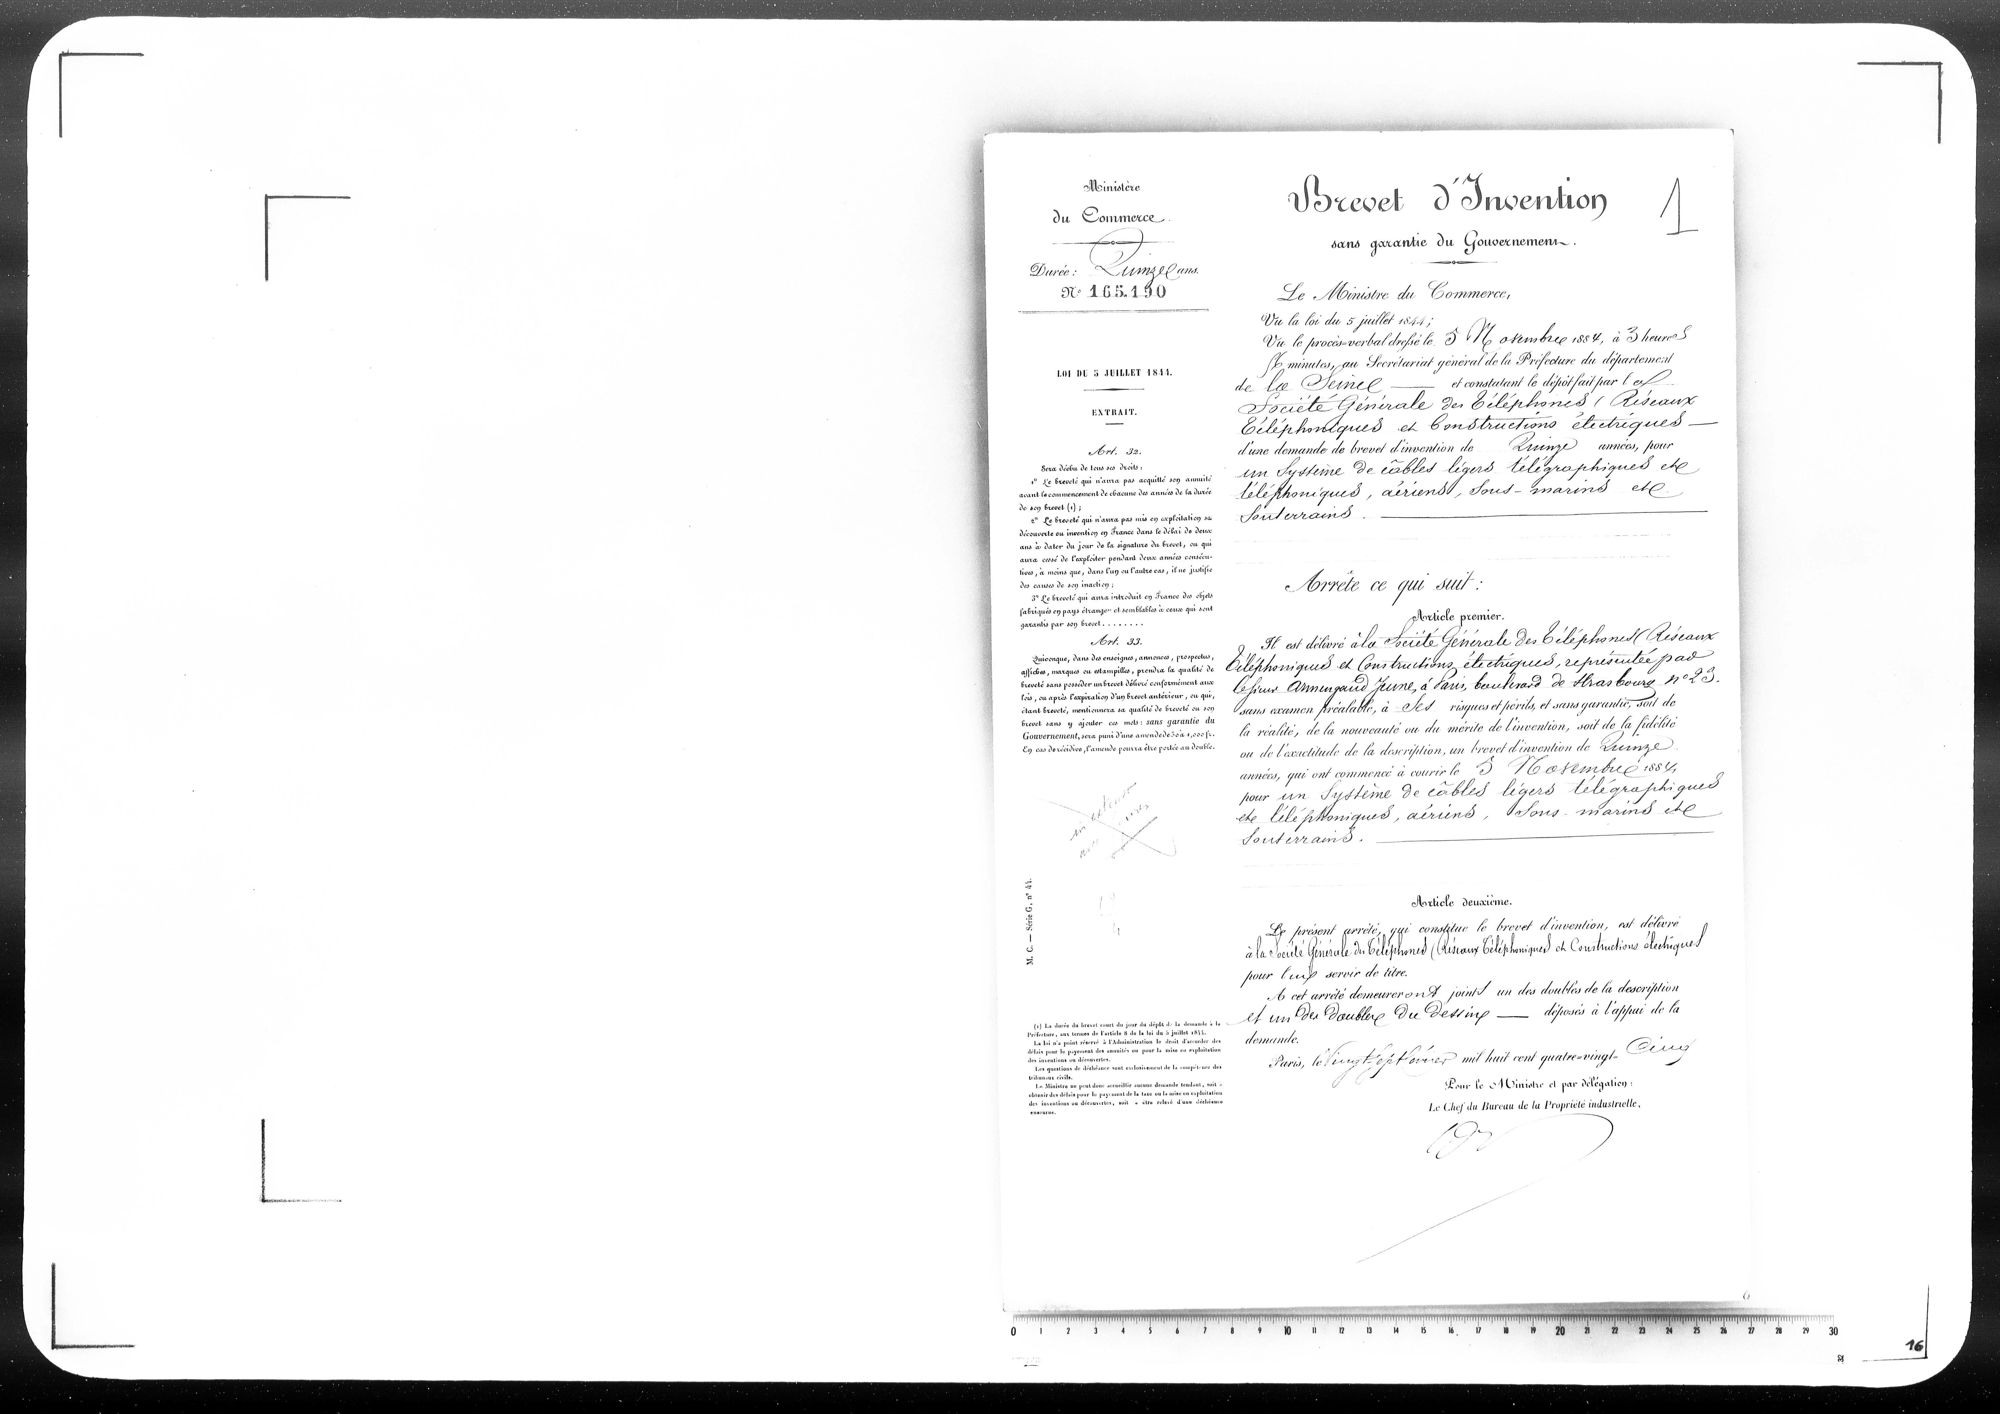 Ministère
du Commerce.
Durée : Quinze ans.
N° 165.190
LOI DU 5 JUILLET 1844.
EXTRAIT.
Art. 32.
Sera déchu de tous ses droits :
1° Le breveté qui n'aura pas acquitté son annuité
avant le commencement de chacune des années de la durée
de son brevet (1) ;
2° Le breveté qui n'aura pas mis en exploitation sa
découverte ou invention en France dans le délai de deux
ans à dater du jour de la signature du brevet, ou qui
aura cessé de l'exploiter pendant deux années consécu-
tives, à moins que, dans l'un ou l'autre cas, il ne justifie
des causes de son inaction ;
3° Le breveté qui aura introduit en France des objets
fabriqués en pays étranger et semblables à ceux qui sont
garantis par son brevet........
Art. 33.
Quiconque, dans des enseignes, annonces, prospectus,
affiches, marques ou estampilles, prendra la qualité de
breveté sans posséder un brevet délivré conformément aux
lois, ou après l'expiration d'un brevet antérieur, ou qui,
étant breveté, mentionnera sa qualité de breveté ou son
brevet sans y ajouter ces mots : sans garantie du
Gouvernement, sera puni d'une amende de 50 à 1,000 fr.
En cas de récidive, l'amende pourra être portée au double.
M. C. — Série G, n° 44.
(1) La durée du brevet court du jour du dépôt de la demande à la
Préfecture, aux termes de l'article 8 de la loi du 5 juillet 1844.
La loi n'a point réservé à l'Administration le droit d'accorder des
délais pour le payement des annuités ou pour la mise en exploitation
des inventions ou découvertes.
Les questions de déchéance sont exclusivement de la compétence des
tribunaux civils.
Le Ministre ne peut donc accueillir aucune demande tendant, soit à
obtenir des délais pour le payement de la taxe ou la mise en exploitation
des inventions ou découvertes, soit à être relevé d'une déchéance
encourue.
Brevet d'Invention
1
sans garantie du Gouvernement.
Le Ministre du Commerce,
Vu la loi du 5 juillet 1844 ;
Vu le procès-verbal dressé le 5 Novembre 1884, à 3 heures
minutes, au Secrétariat général de la Préfecture du département
de la Seine — et constatant le dépôt fait par la
Société Générale des Téléphones (Réseaux
Téléphoniques et Constructions électriques —
d'une demande de brevet d'invention de Quinze années, pour
un Système de câbles légers télégraphiques et
téléphoniques, aériens, sous-marins et
souterrains.
Arrête ce qui suit :
Article premier.
Il est délivré à la Société Générale des Téléphones (Réseaux
Téléphoniques et Constructions électriques, représentée par
le sieur Armengaud Jeune, à Paris, boulevard de Strasbourg n° 23.
sans examen préalable, à ses risques et périls, et sans garantie, soit de
la réalité, de la nouveauté ou du mérite de l'invention, soit de la fidélité
ou de l'exactitude de la description, un brevet d'invention de Quinze
années, qui ont commencé à courir le 5 Novembre 1884,
pour un Système de câbles légers télégraphiques
et téléphoniques, aériens, sous-marins et
souterrains.
Article deuxième.
Le présent arrêté, qui constitue le brevet d'invention, est délivré
à la Société Générale des Téléphones (Réseaux Téléphoniques) et Constructions électriques
pour lui servir de titre.
A cet arrêté demeureront joints un des doubles de la description
et un des doubles du dessin — déposés à l'appui de la
demande.
Paris, le vingt sept février mil huit cent quatre-vingt-cinq
Pour le Ministre et par délégation :
Le Chef du Bureau de la Propriété industrielle,
0 1 2 3 4 5 6 7 8 9 10 11 12 13 14 15 16 17 18 19 20 21 22 23 24 25 26 27 28 29 30
16